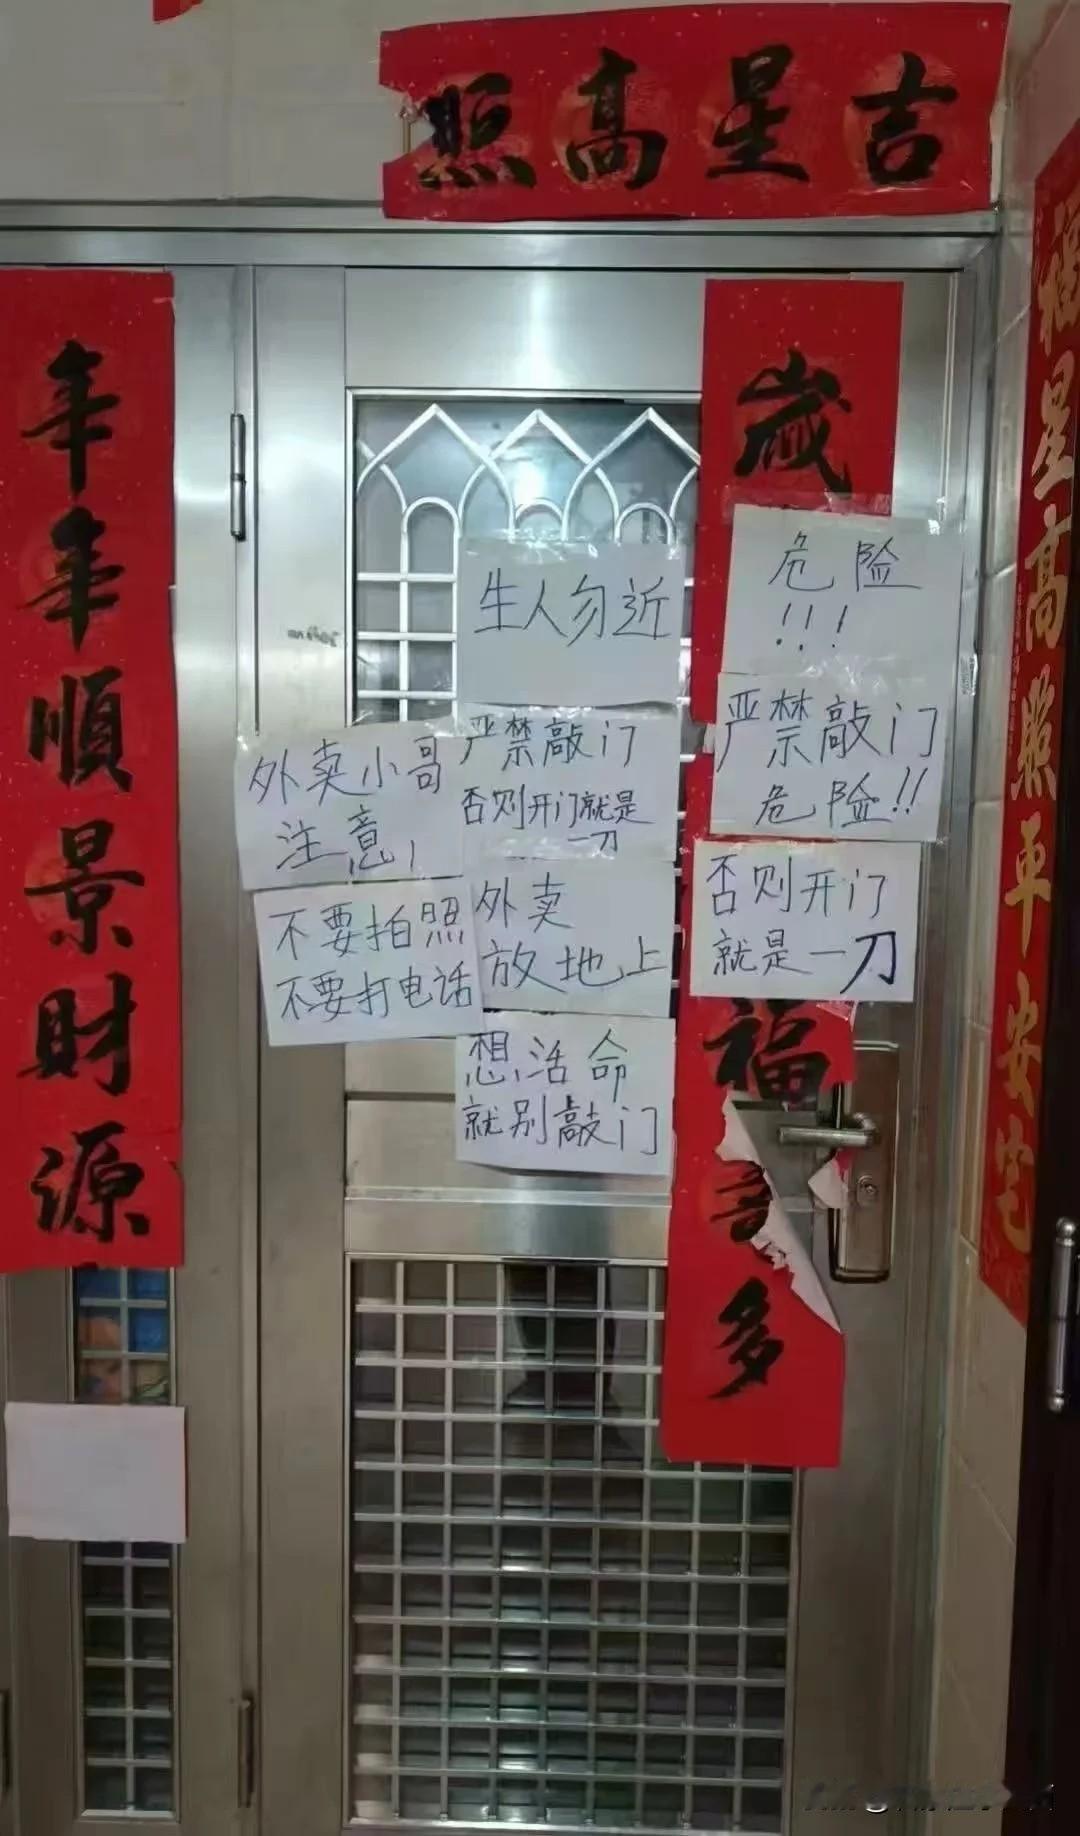 吉星高照
年年順景財源
歲
福
多
福星高照平安宅
生人勿近
危险
!!!
严禁敲门
危险!!
否则开门
就是一刀
外卖小哥
注意,
严禁敲门
否则开门就是
一刀
不要拍照
不要打电话
外卖
放地上
想活命
就别敲门